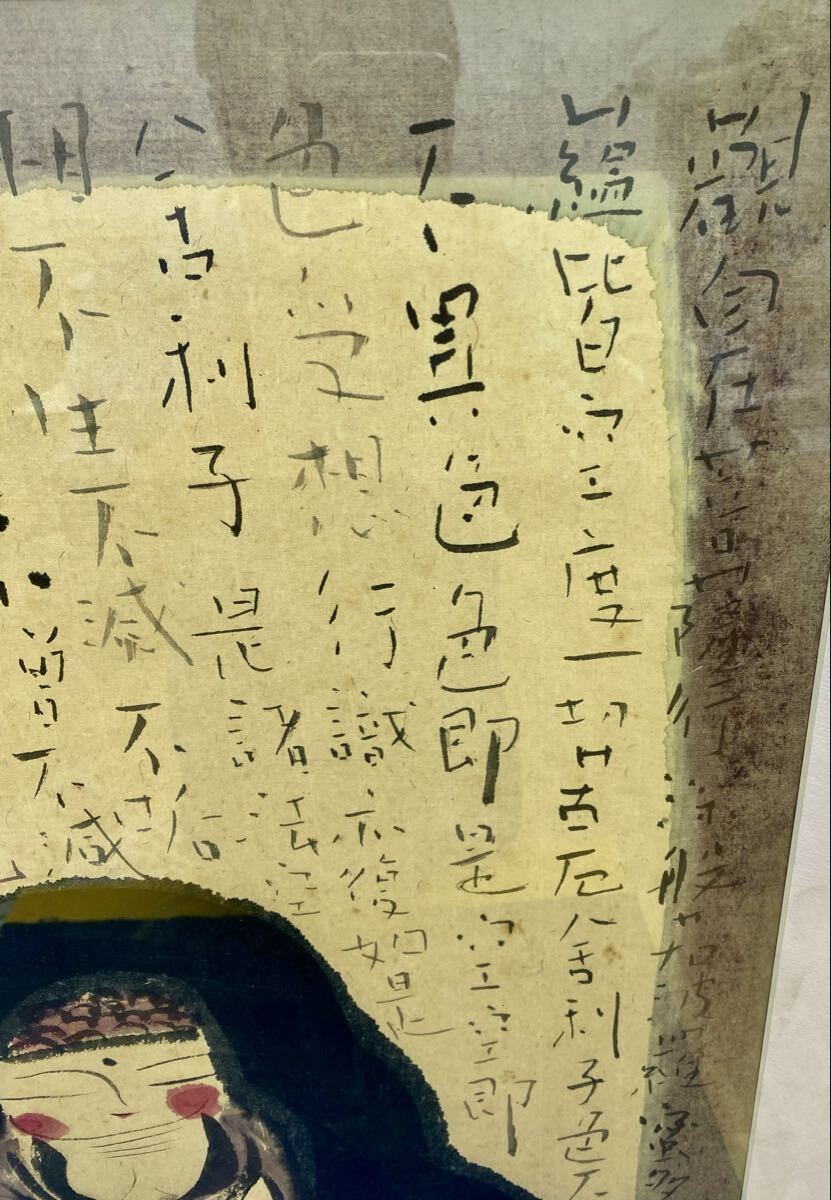 觀自在菩薩行深般若波羅蜜多
蘊皆空度一切苦厄舍利子色不
不異色色即是空空即
色受想行識亦復如是
舍利子是諸法空
相不生不滅不垢
不減